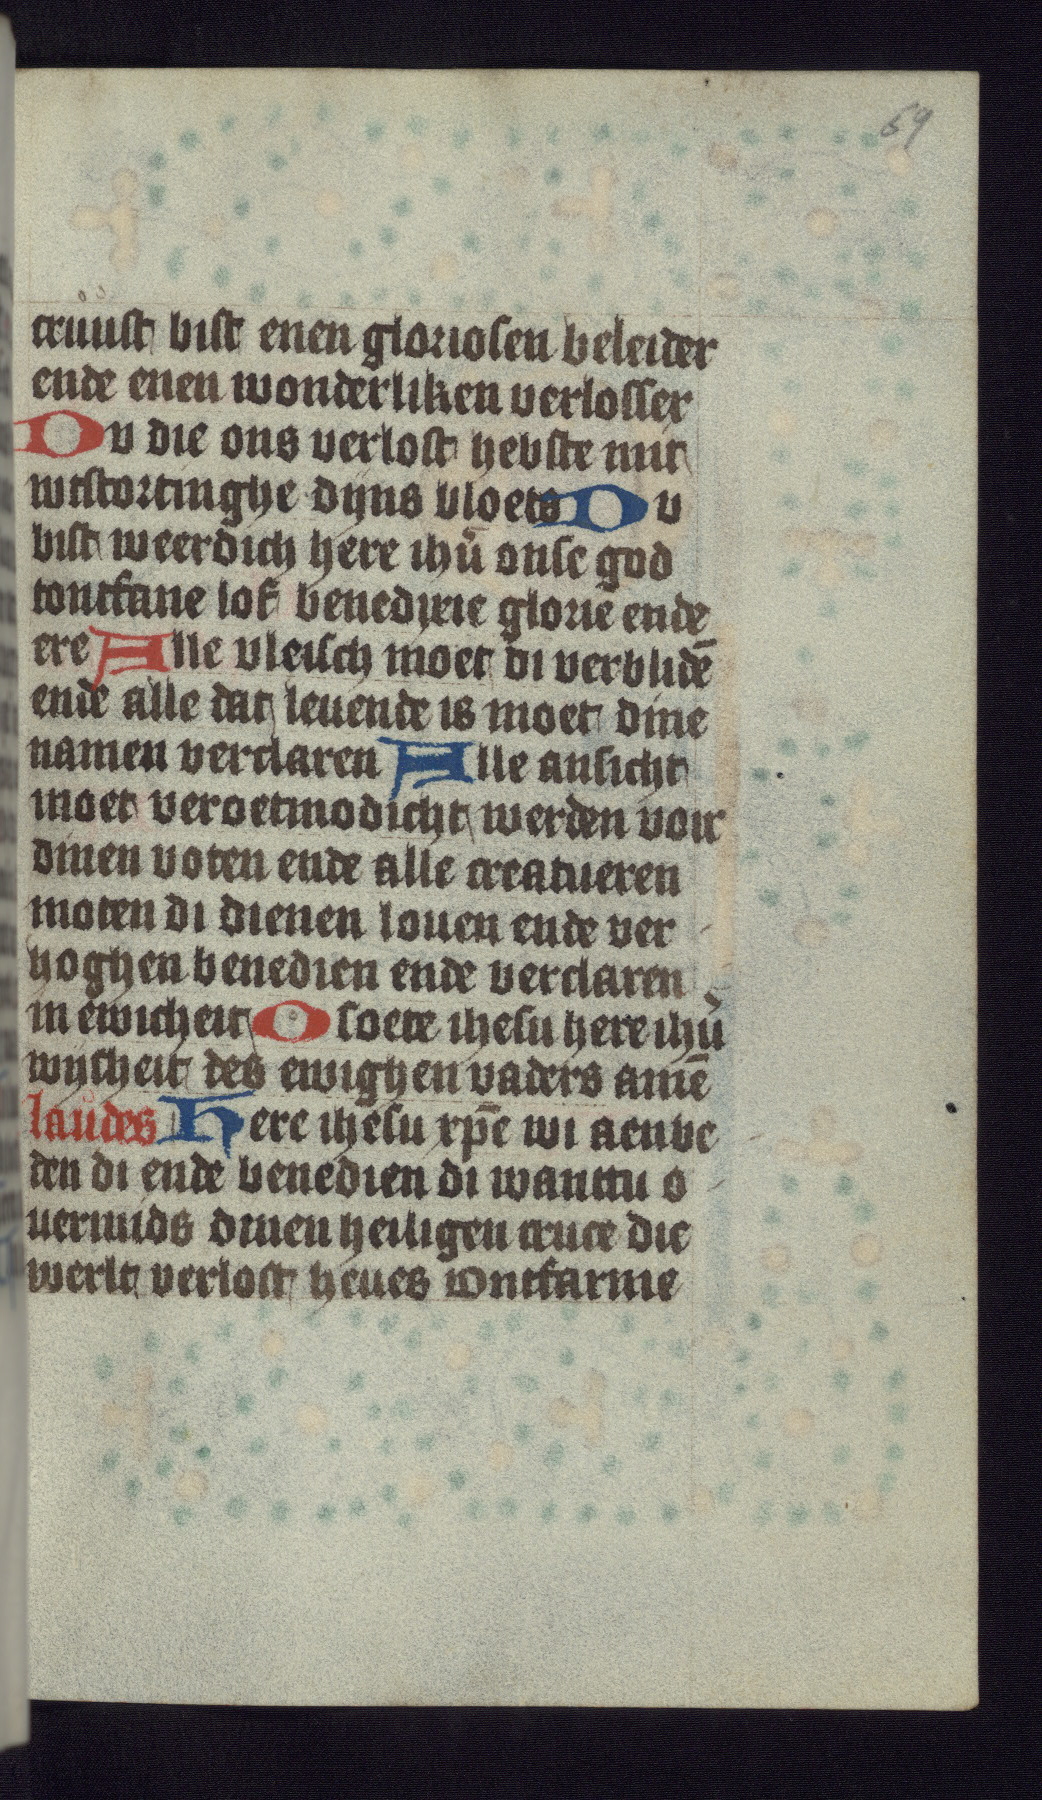 59
cruust bist enen gloriosen beleider
ende enen wonderliken verlosser
Du die ons verlost hebste mit
wtstortinghe dijns bloets Du
bist weerdich here ihu̅ onse god
tontfane lof benedixie glorie ende
ere Alle vleisch moet di verblide̅
ende alle dat leuende is moet dine
namen verclaren Alle ansicht
moet veroetmodicht werden voir
dinen voten ende alle creatueren
moten di dienen louen ende ver
hoghen benedien ende verclaren
in ewicheit O soete ihesu here ihu̅
wijsheit des ewighen vaders ame̅
laudes Here ihesu xp̅e wi aenbe
den di ende benedien di wanttu o
uermids dinen heiligen cruce die
werlt verlost heues Ontfarme